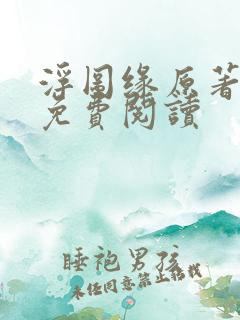 浮图缘原著
免費閱讀
睡袍男孩
未经同意禁止转载